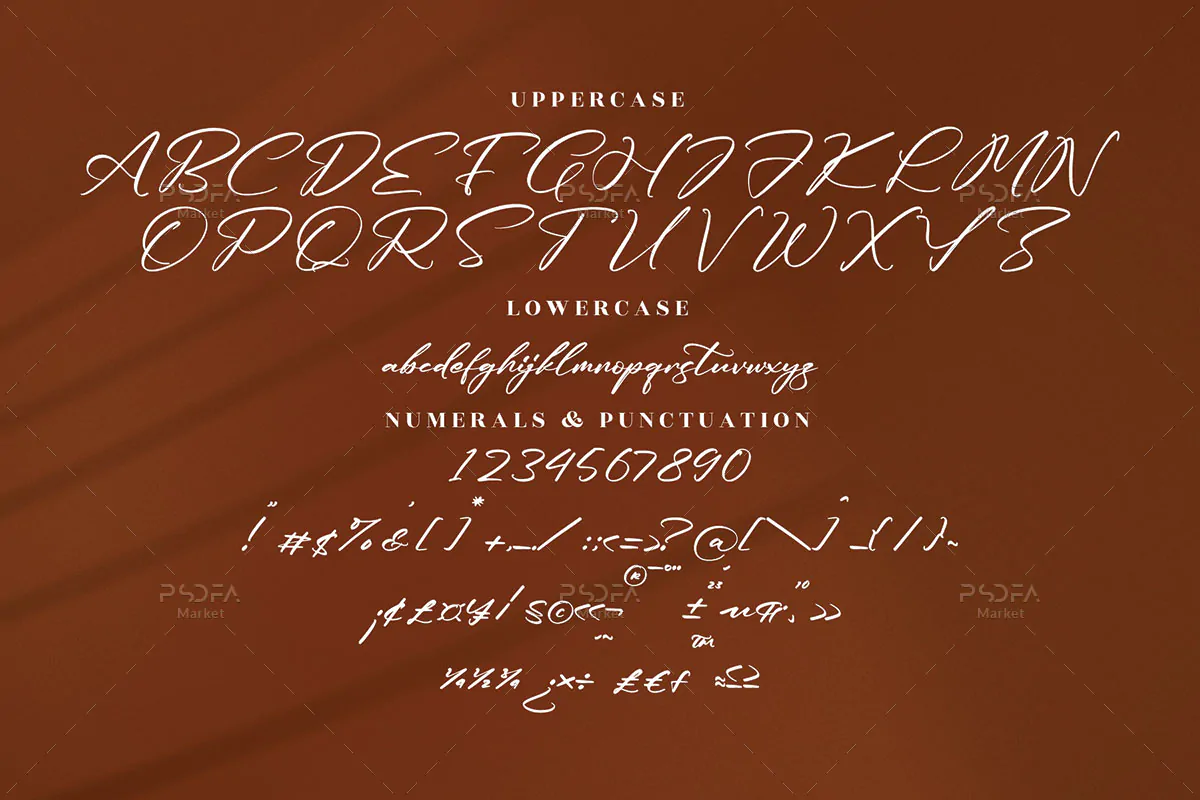 UPPERCASE
ABCDEFGHIJKLMN
OPQRSTUVWXYZ
LOWERCASE
abcdefghijklmnopqrstuvwxyz
NUMERALS & PUNCTUATION
1234567890
! " # $ % & ' [ ] * + , - . / : ; < = > ? @ [ \ ] ^ _ { / } ~
® ¯ ° ʺ
¡ ¢ £ ¤ ¥ / § © « ¬ ± 23 ´ µ ¶ · ¸ 10 »
TM
¼ ½ ¾ ¿ × ÷ £ € ƒ ≈ ≤ ≥
PSDFA Market
PSDFA Market
PSDFA Market
PSDFA Market
PSDFA Market
PSDFA Market